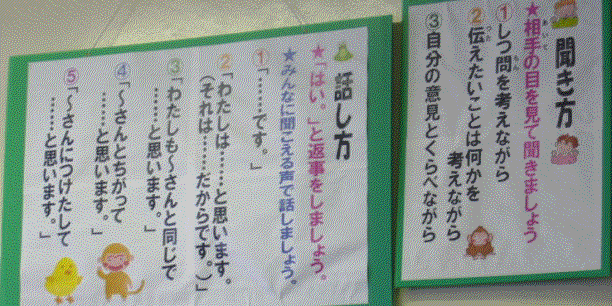 聞き方
★相手の目を見て聞きましょう
①しつ問を考えながら
②伝えたいことは何かを
考えながら
③自分の意見とくらべながら
話し方
★「はい。」と返事をしましょう。
★みんなに聞こえる声で話しましょう。
①「……です。」
②「わたしは……と思います。
(それは……だからです。)」
③「わたしも~さんと同じで
……と思います。」
④「~さんとちがって
……と思います。」
⑤「~さんにつけたして
……と思います。」